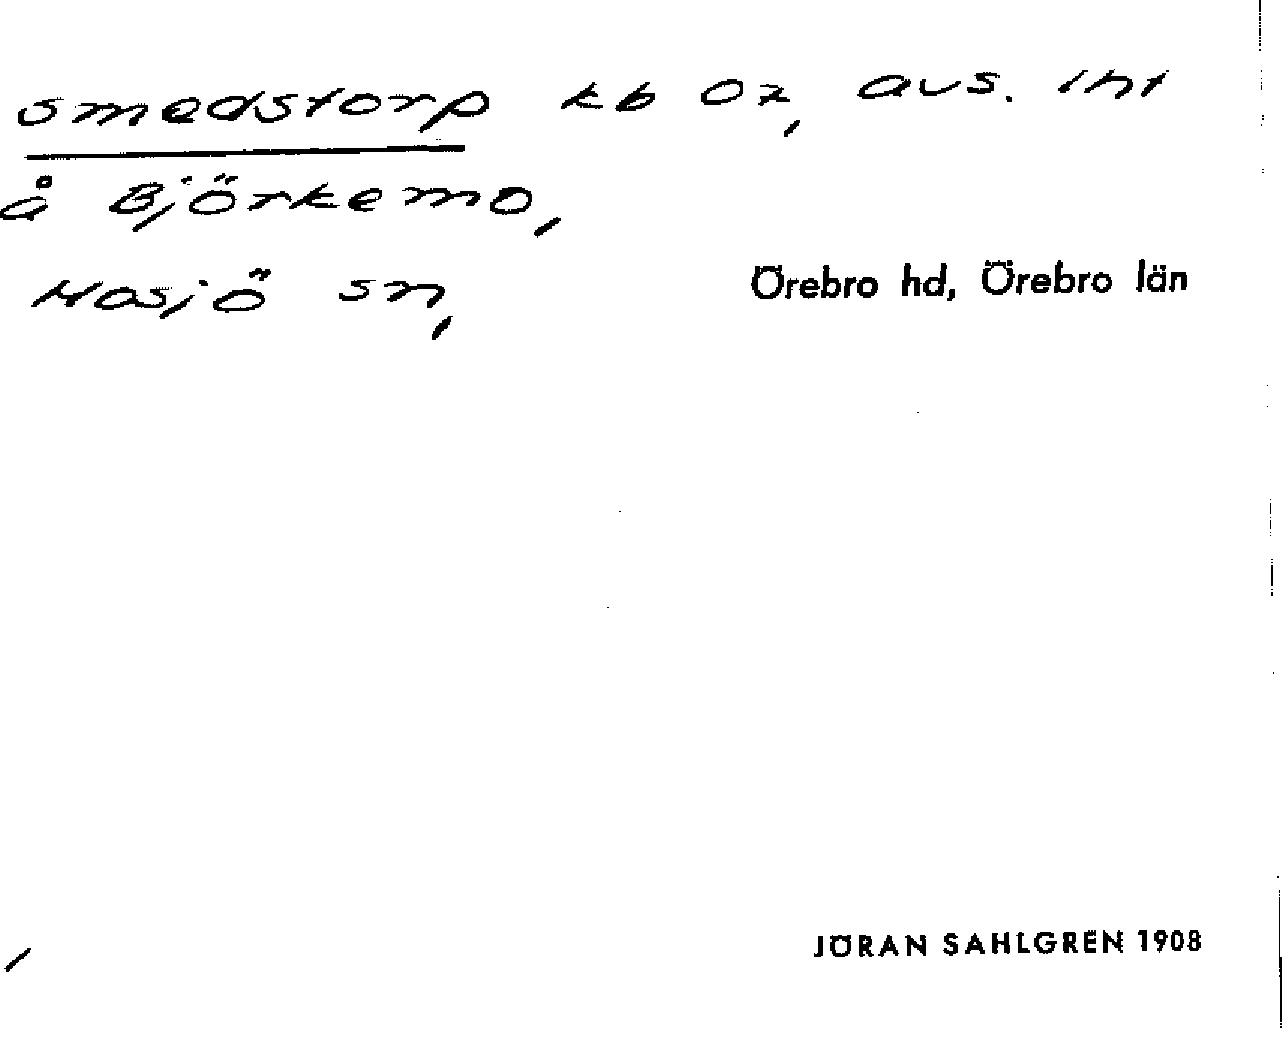 Smedstorp kb Oz, avs. int
å Björkemo,
Mosjö sn, Örebro hd, Örebro län
JÖRAN SAHLGREN 1908